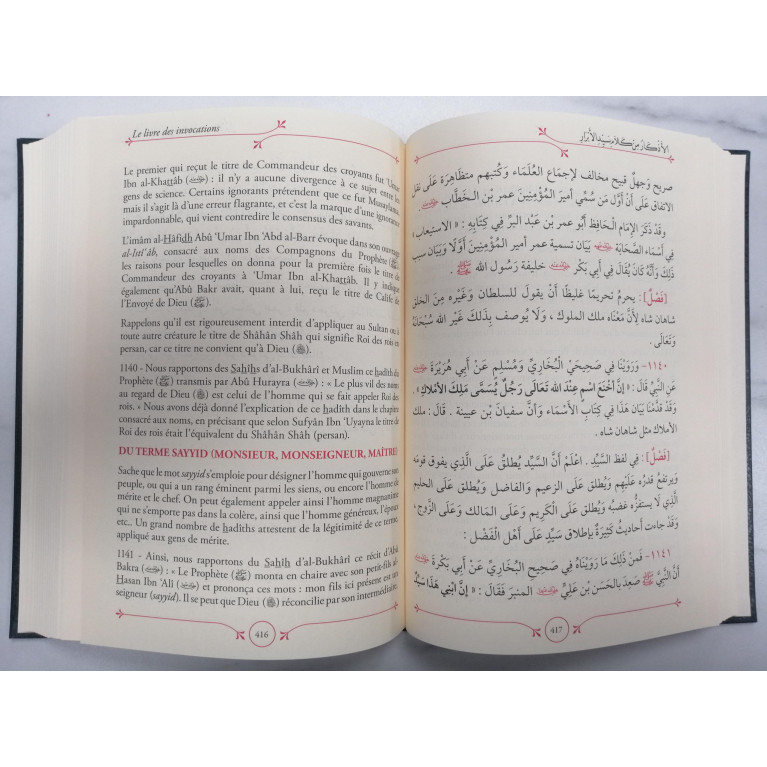 Le livre des invocations
Le premier qui reçut le titre de Commandeur des croyants fut 'Umar
Ibn al-Khattâb : il n'y a aucune divergence à ce sujet entre les
gens de science. Certains ignorants prétendent que ce fut Musaylama,
mais il s'agit là d'une erreur flagrante, et c'est la marque d'une ignorance
impardonnable, qui vient contredire le consensus des savants.
L'imâm al-Hâfidh Abû 'Umar Ibn 'Abd al-Barr évoque dans son ouvrage
al-Istî'âb, consacré aux noms des Compagnons du Prophète (ﷺ)
les raisons pour lesquelles on donna pour la première fois le titre de
Commandeur des croyants à 'Umar Ibn al-Khattâb. Il y indique
également qu'Abû Bakr avait, quant à lui, reçu le titre de Calife de
l'Envoyé de Dieu (ﷺ).
Rappelons qu'il est rigoureusement interdit d'appliquer au Sultan ou à
toute autre créature le titre de Shâhân Shâh qui signifie Roi des rois en
persan, car ce titre ne convient qu'à Dieu.
1140 - Nous rapportons des Sahîhs d'al-Bukhârî et Muslim ce hadîth du
Prophète (ﷺ) transmis par Abû Hurayra : « Le plus vil des noms
au regard de Dieu est celui de l'homme qui se fait appeler Roi des
rois. » Nous avons déjà donné l'explication de ce hadîth dans le chapitre
consacré aux noms, en précisant que selon Sufyân Ibn 'Uyayna le titre de
Roi des rois était l'équivalent du Shâhân Shâh (persan).
DU TERME SAYYID (MONSIEUR, MONSEIGNEUR, MAÎTRE)
Sache que le mot sayyid s'emploie pour désigner l'homme qui gouverne son
peuple, ou qui a un rang éminent parmi les siens, ou encore l'homme de
mérite et le chef. On peut également appeler ainsi l'homme magnanime
qui ne s'emporte pas dans la colère, ainsi que l'homme généreux, l'époux,
etc.. Un grand nombre de hadîths attestent de la légitimité de ce terme
appliqué aux gens de mérite.
1141 - Ainsi, nous rapportons du Sahîh d'al-Bukhârî ce récit d'Abû
Bakra : « Le Prophète (ﷺ) monta en chaire avec son petit-fils al-
Hasan Ibn 'Alî et prononça ces mots : mon fils ici présent est un
seigneur (sayyid). Il se peut que Dieu réconcilie par son intermédiaire,
416
الأذكار من كلام سيد الأبرار
صريح وَجهلٌ قبيح مخالف لإجماع العُلَمَاء وَكُتبهم متظاهِرَة عَلَى نقل
الاتفاق عَلَى أَنَّ أَوَّل مَن سُمِّي أميرَ المُؤْمِنِينَ عمر بن الـخَطَّاب.
وقَد ذَكَرَ الإمَام الـحَافِظ أَبُو عمر بن عَبْد البرِّ فِي كِتَابِه : «الاستيعاب»
فِي أَسْمَاء الصَّحَابَة بَيَان تسمية عمر أمير المُؤْمِنِينَ أَوَّلًا وَبَيَان سبب
ذَلِكَ وَأَنَّهُ كَانَ يُقَال فِي أَبِي بَكْر خَلِيفَة رَسُول الله ﷺ.
[فَصْلٌ] : يحرمُ تَحريمًا غليظًا أَنْ يقولَ للسلطان وَغَيْره مِنَ الخلق
شاهان شاه لِأَنَّ مَعْنَاه ملك الملوك ، وَلَا يُوصف بِذَلِكَ غَيْر الله سُبْحَانَهُ
وَتَعَالَى .
١١٤٠- وَرَوَيْنَا فِي صَحِيحَيْ البُخَارِيِّ وَمُسْلِم عَنْ أَبِي هُرَيْرَةَ
عَنِ النَّبِيِّ قَالَ : «إنَّ أَخْنَعَ اسْمٍ عِنْدَ اللهِ تَعَالَى رَجُلٌ يُسَمَّى مَلِكَ الأَمْلَاكِ».
وَقَدْ قَدَّمْنَا بَيَان هَذَا فِي كِتَابِ الأَسْمَاء وَأَنَّ سفيَانَ بن عيينة . قَالَ : مَلِك
الأملاك مثل شاهان شاه .
[فَصْلٌ] : فِي لفظ السَّيِّد . اعْلَمْ أَنَّ السَّيِّدَ يُطلَقُ عَلَى الَّذِي يفوق قومَه
ويرتفعُ قدرُه عَلَيْهِم وَيُطلق عَلَى الزعيم والفاضل وَيُطلق عَلَى الحليم
الَّذِي لَا يستفزُّه غضبُه وَيُطلَق عَلَى الْكَرِيم وَعَلَى المالك وَعَلَى الزَّوج ،
وَقَد جاءت أحاديثُ كثيرَةٌ بِإطلاق سيِّدٍ عَلَى أَهْل الْفَضْل :
١١٤١- فَمن ذَلِكَ مَا رَوَيْنَاهُ فِي صَحِيحِ البُخَارِيِّ عَنْ أَبِي بَكْرَةَ
أَنَّ النَّبِيَّ ﷺ صَعِدَ بالحَسَن بْن عَلِيٍّ المنبرَ فَقَالَ : «إنَّ ابْنِي هَذَا سَيِّدٌ
417